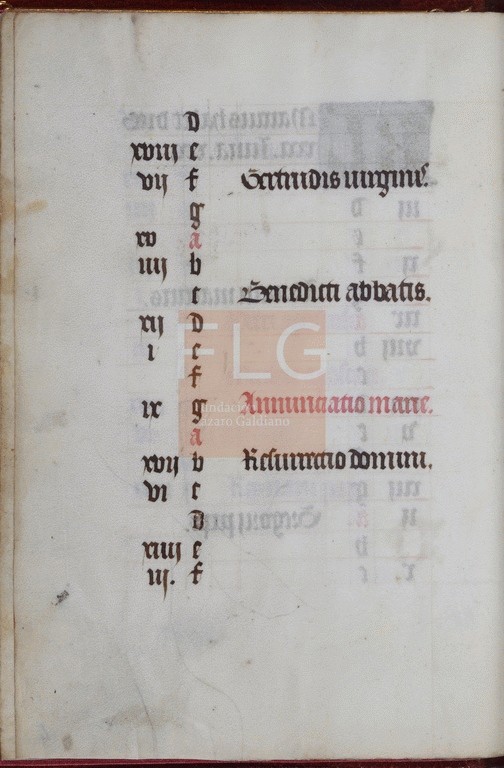 d
xviij e
vij f Gertrudis virginis.
g
xv a
iiij b
c Benedicti abbatis.
xij d
i e
f
ix g Annunciatio marie.
a
xvij b Resurrectio domini.
vi c
d
xiiij e
iij. f
FLG
Fundación
Lázaro Galdiano